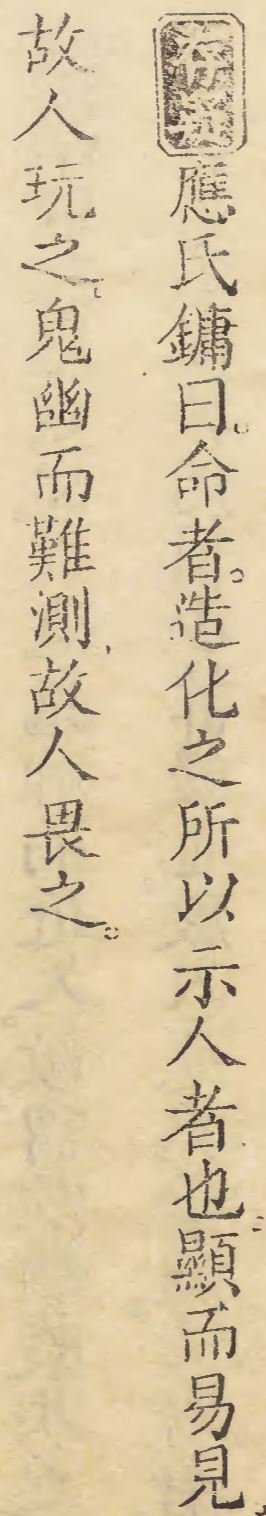 應氏鏞曰。命者。造化之所以示人者也。顯而易見、
故人玩之。鬼幽而難測、故人畏之。